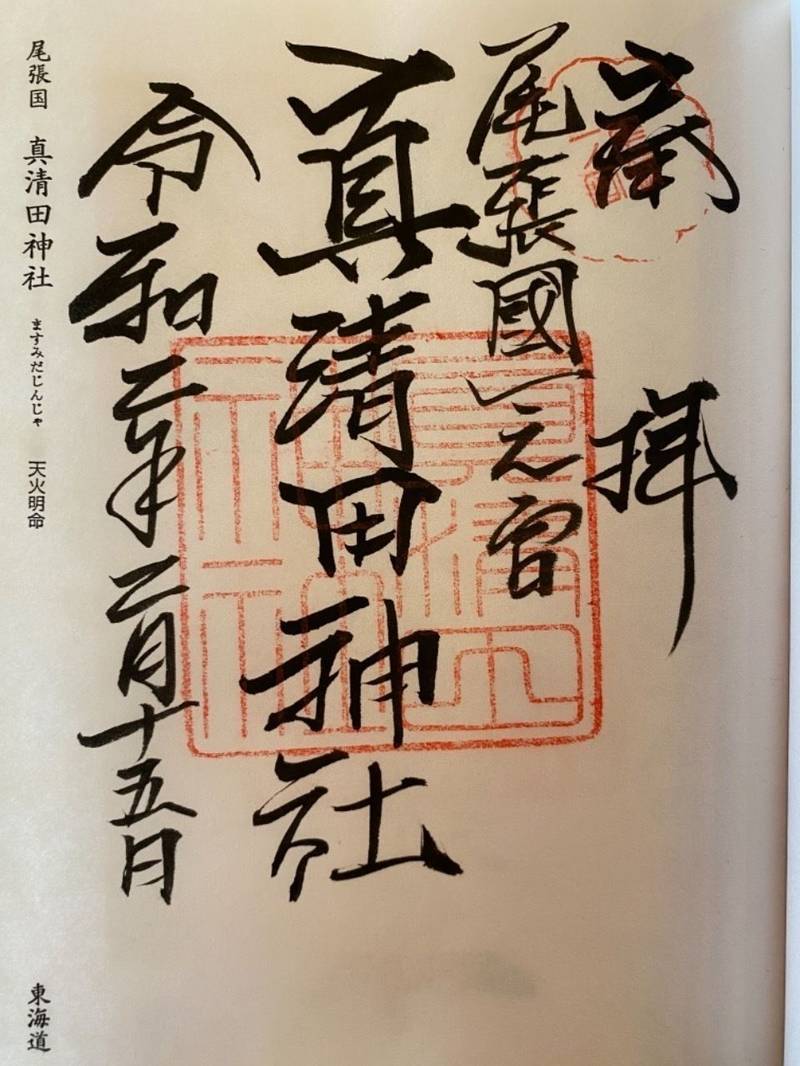 拝
尾張國一之宮
真清田神社
令和二年二月十五日
尾張国 真清田神社 ますみだじんじゃ 天火明命
東海道